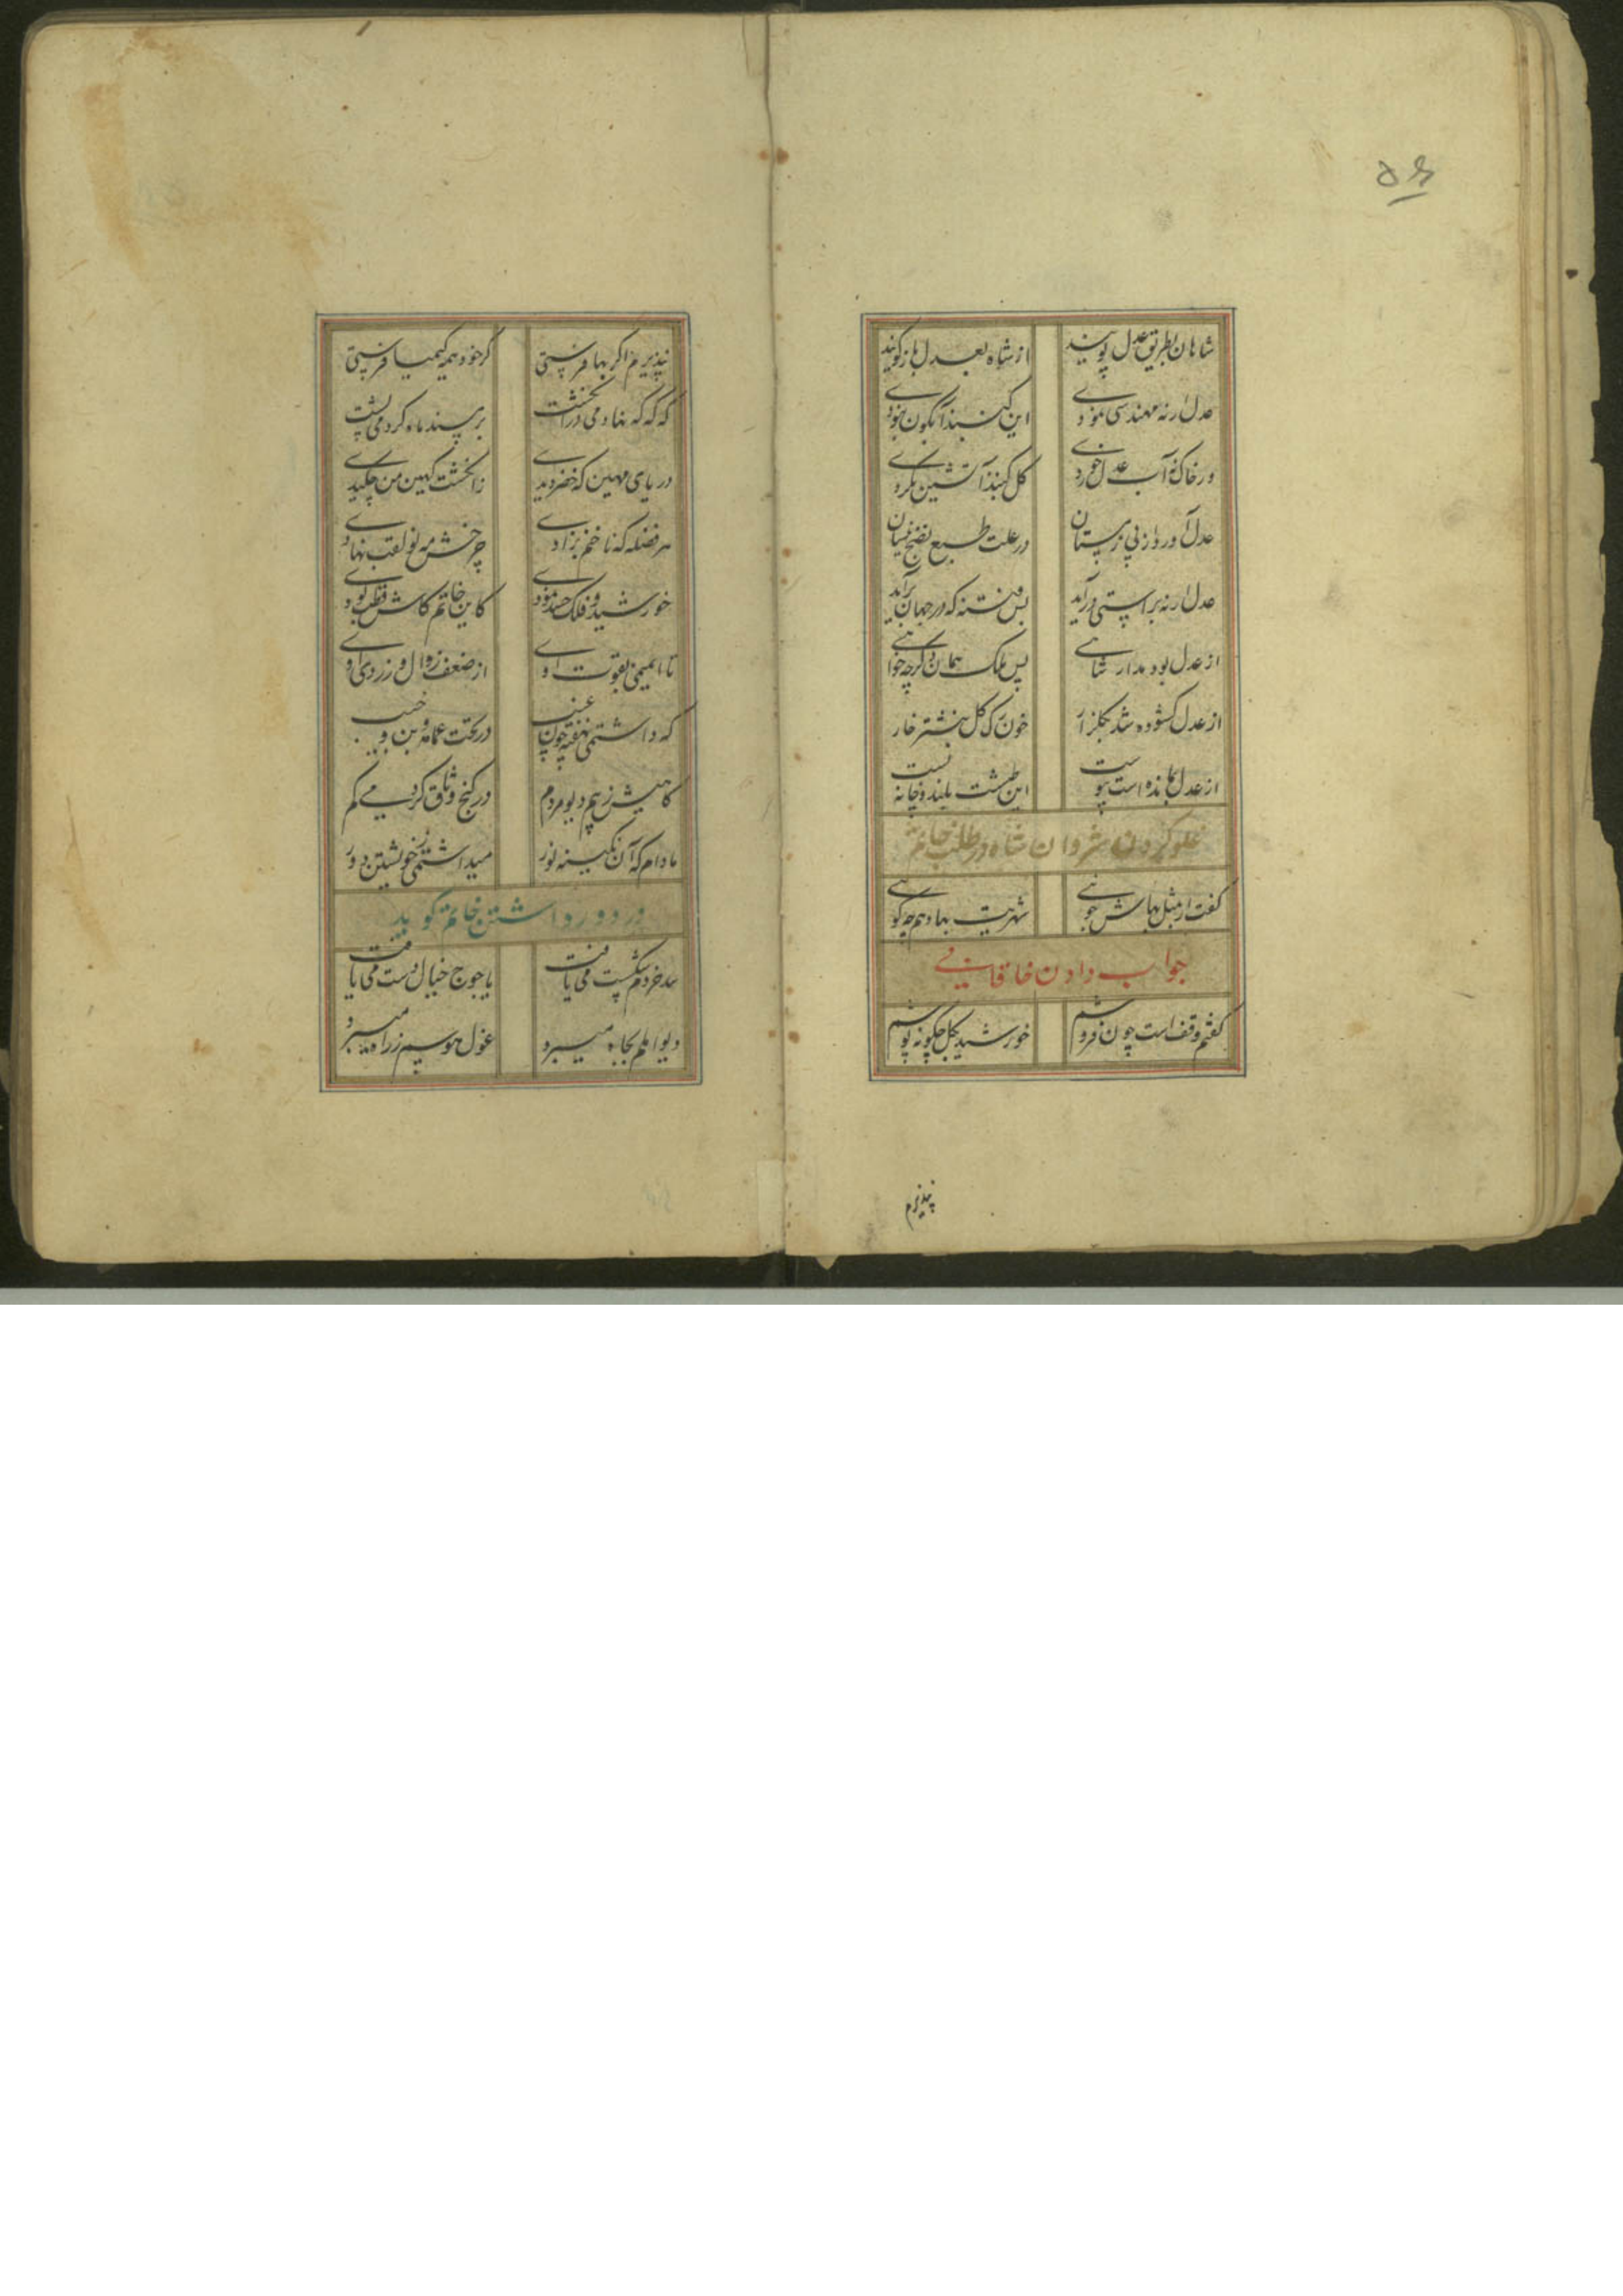 ۵۶
شاهان بطریق عدل پویند از شاه بعدل باز گویند
عدل ار نه مهندسی نمودی این گنبد آبگون نبودی
ور خاک نه آب عدل خوردی گل گنبد آتشین نکردی
عدل آورد از پی زمستان در علت طبع نضج نیسان
عدل ار نه براستی درآید بس فتنه که در جهان برآید
از عدل بود مدار شاهی پس ملک همان و گرچه خواهی
از عدل گشوده شد بگلزار خون رگ گل بنشتر خار
از عدل بمانده است پیوست این طشت بلند و خانه پست
غلو کردن شروان شاه در طلب خاتم
گفت ار مثل بهاش جوئی شهریت بها دهم چه گوئی
جواب دادن خاقانی
گفتم وقف است چون فروشم خورشید بگل چگونه پوشم
نپذیرم
نپذیرم اگر بها فرستی گر خود همه کیمیا فرستی
گه گه که نهادمی در انگشت بر سینه ماه کردمی پشت
دریای مهین که خضر دیدی ز انگشت کهین من چکیدی
هر فضله که ناخنم بزادی چرخش مه نو لقب نهادی
خورشید فلک حسد نمودی کاین خاتم کاش قطب بودی
تا ایمیمی بقوت اوی از ضعف زوال و زردی اوی
که داشتمی نهفته چون عنب در تحت عمامه بن و
گاهیش ز بیم دیو مردم در کنج وثاق کردمی گم
مادام که آن نگینه نور میداشتمی ز خویشتن دور
در دور داشتن خاتم گوید
سد خردم شکست می یافت یاجوج خیال دست می یافت
دیو املم بجاه میبرد غول هوسم ز راه میبرد